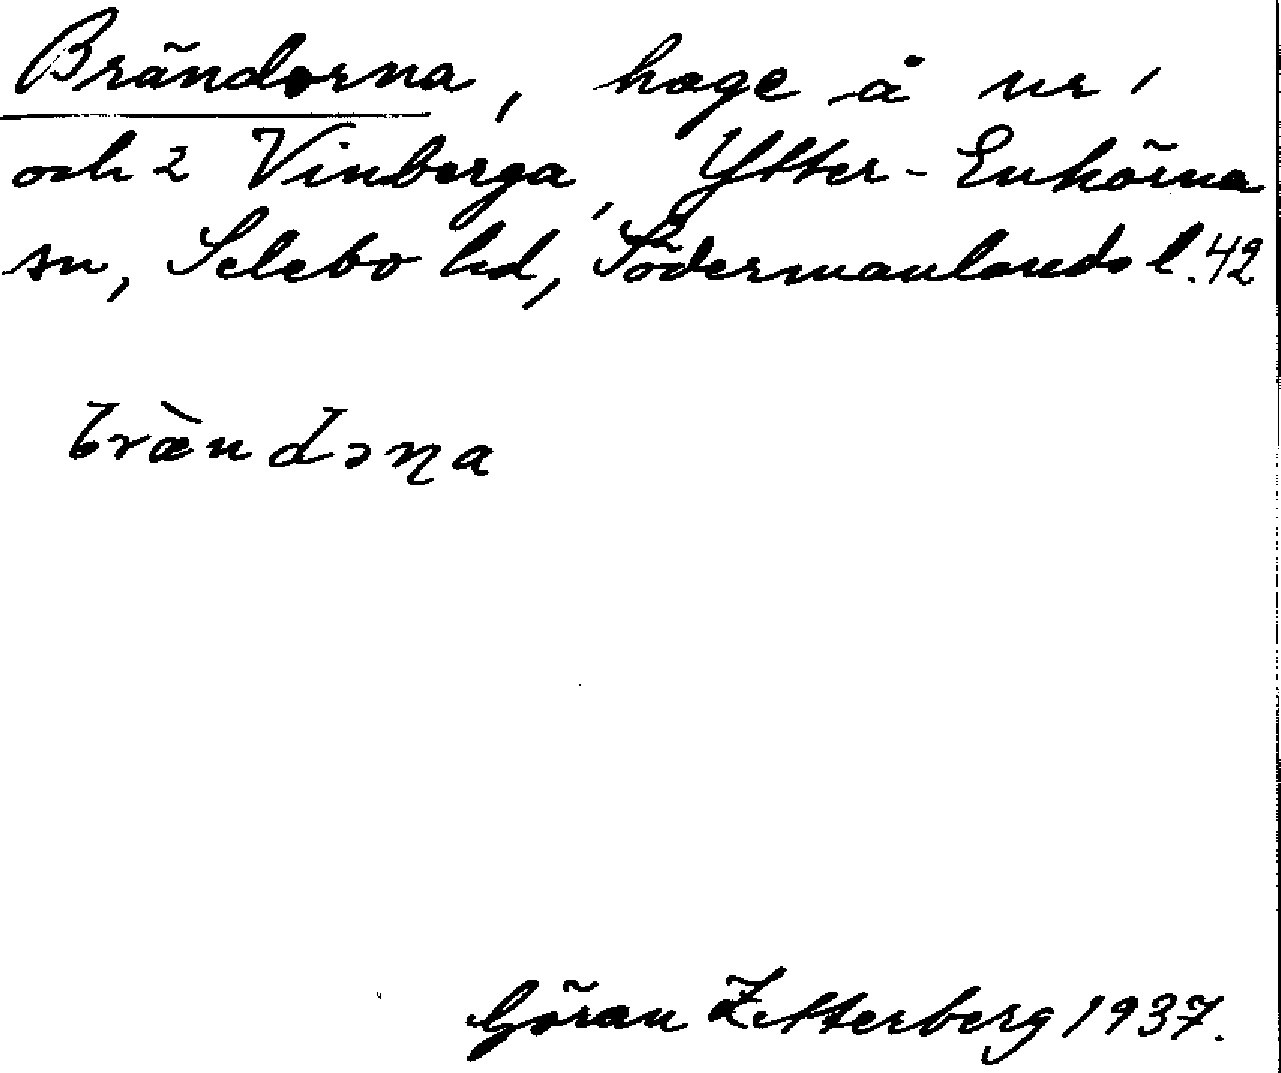 Brändorna, hage å nr 1
och 2 Vinberga, Ytter-Enhörna
sn, Selebo hd, Södermanlands l. 42
bræ̀ndəɳa
Göran Zetterberg 1937.